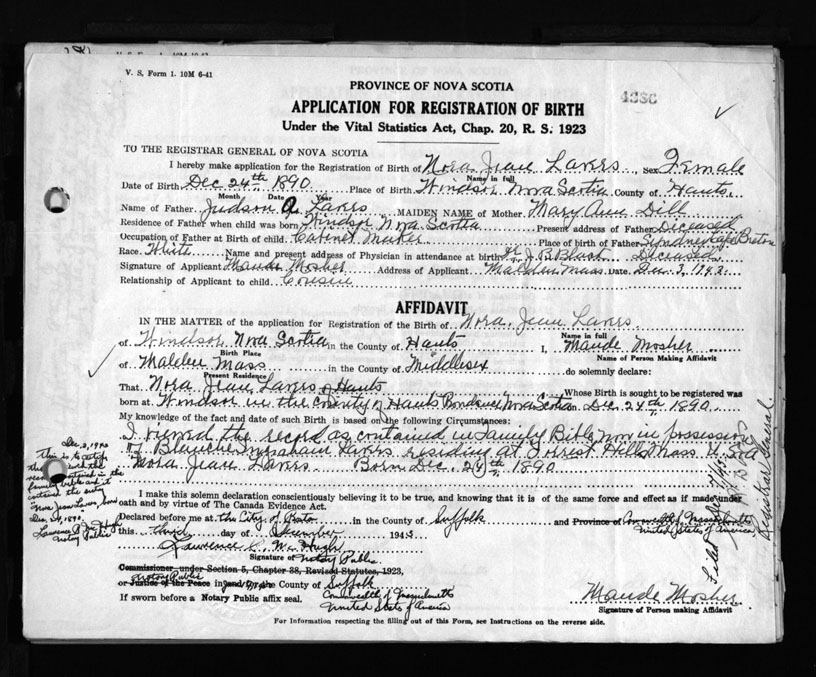 V. S. Form 1. 10M 6-41
4386
PROVINCE OF NOVA SCOTIA
APPLICATION FOR REGISTRATION OF BIRTH
Under the Vital Statistics Act, Chap. 20, R. S. 1923
TO THE REGISTRAR GENERAL OF NOVA SCOTIA
I hereby make application for the Registration of Birth of Nora Jean Lavers, Sex Female
Name in full
Date of Birth Dec 24th 1890 Place of Birth Windsor Nova Scotia County of Hants
Month Date Year
Name of Father Judson A. Lavers MAIDEN NAME of Mother Mary Ann Dill
Residence of Father when child was born Windsor Nova Scotia Present address of Father Deceased
Occupation of Father at Birth of child Cabinet Maker Place of birth of Father Sydney Cape Breton
Race White Name and present address of Physician in attendance at birth Dr J. B. Black Deceased
Signature of Applicant Maude Mosher Address of Applicant Malden Mass Date Dec. 3, 1942
Relationship of Applicant to child Cousin
AFFIDAVIT
IN THE MATTER of the application for Registration of the Birth of Nora Jean Lavers
Name in full
of Windsor Nova Scotia in the County of Hants I, Maude Mosher
Birth Place Name of Person Making Affidavit
of Malden Mass in the County of Middlesex do solemnly declare:
Present Residence
That Nora Jean Lavers of Hants Whose Birth is sought to be registered was
born at Windsor in the county of Hants Province Nova Scotia Dec. 24th 1890
My knowledge of the fact and date of such Birth is based on the following Circumstances:
I viewed the record as contained in Family Bible now in possession
of Blanche Lavers residing at Forrest Hills Mass U.S.A
"Nora Jean Lavers Born Dec. 24th 1890
Dec. 3, 1942
this is to certify
that I viewed the
record contained in the
family bible and it
contained the entry
"Nora Jean Lavers, born
Dec. 24, 1890.
Lawrence R. Mc Hugh
Notary Public
I make this solemn declaration conscientiously believing it to be true, and knowing that it is of the same force and effect as if made under
oath and by virtue of The Canada Evidence Act.
Declared before me at the City of Boston in the County of Suffolk and Province of Commonwealth of Massachusetts
United States of America
this third day of December 194
Lawrence R. Mc Hugh
Signature of Notary Public
Commissioner, under Section 5, Chapter 38, Revised Statutes, 1923,
Notary Public
or Justice of the Peace in and for the County of Suffolk
If sworn before a Notary Public affix seal. Commonwealth of Massachusetts
United States of America
Maude Mosher
Signature of Person making Affidavit
For Information respecting the filling out of this Form, see Instructions on the reverse side.
Filed
Registrar General